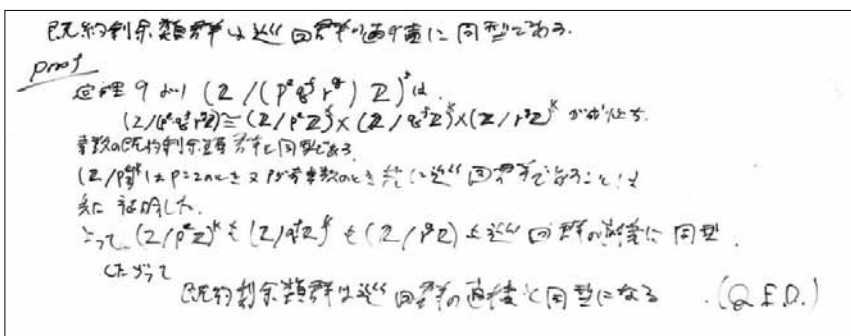 既約剰余類群は巡回群の直積に同型である.
proof
定理9より (Z/(p^e q^f r^g) Z)^× は,
(Z/p^e q^f r^g Z) ≅ (Z/p^e Z)^× × (Z/q^f Z)^× × (Z/r^g Z)^× が成立ち,
素数の既約剰余類群と同型である.
(Z/p^e Z)^× は p=2のとき 又 pが奇素数のとき 共に巡回群であることは
先に証明した.
よって (Z/p^e Z)^× も (Z/q^f Z)^× も (Z/r^g Z) も巡回群の直積に同型.
したがって
既約剰余類群は巡回群の直積と同型になる. (Q.E.D.)